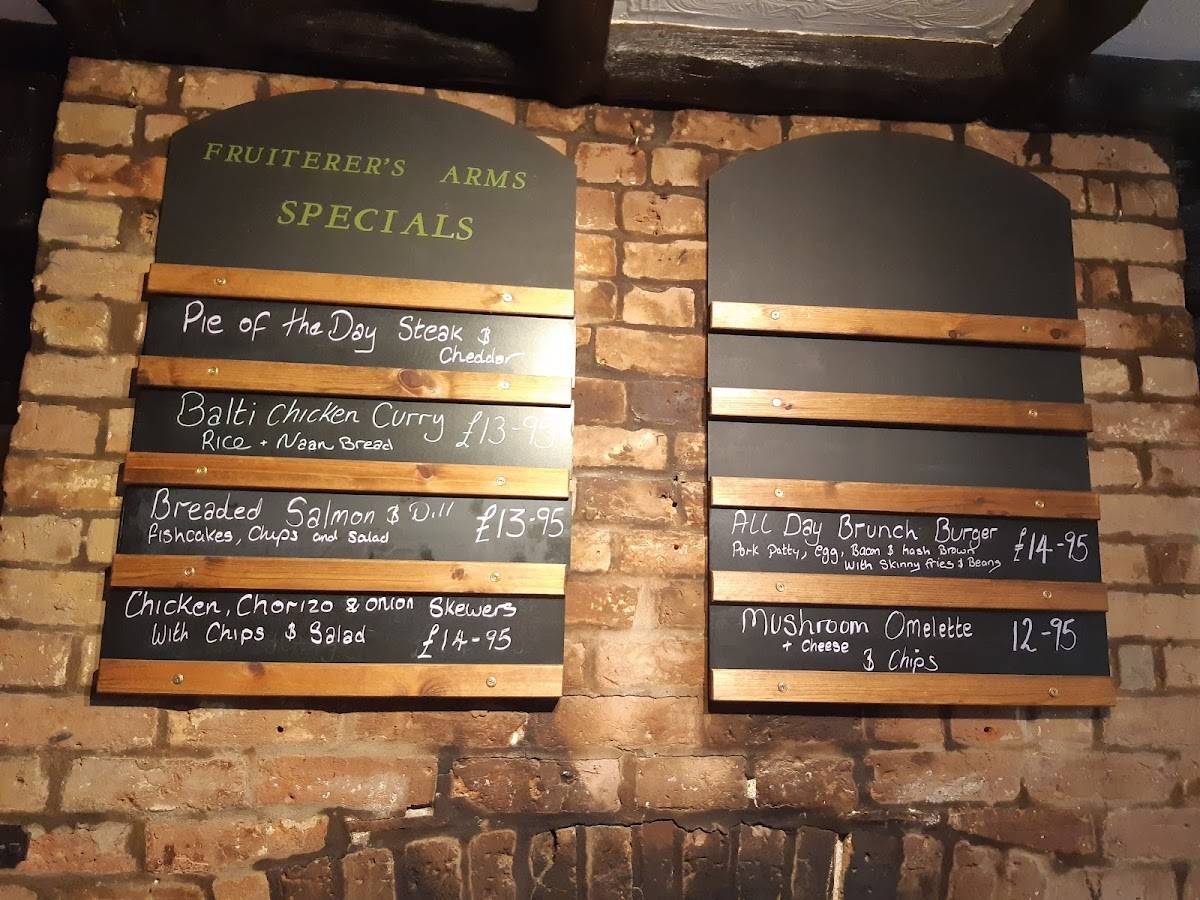 FRUITERER'S ARMS
SPECIALS
Pie of the Day Steak &
Cheddar
Balti Chicken Curry £13-95
Rice + Naan Bread
Breaded Salmon & Dill £13-95
Fishcakes, Chips and Salad
Chicken, Chorizo & Onion Skewers
With Chips & Salad £14-95
All Day Brunch Burger £14-95
Pork Patty, Egg, Bacon & hash Brown
With Skinny fries & Beans
Mushroom Omelette 12-95
+ Cheese
& Chips